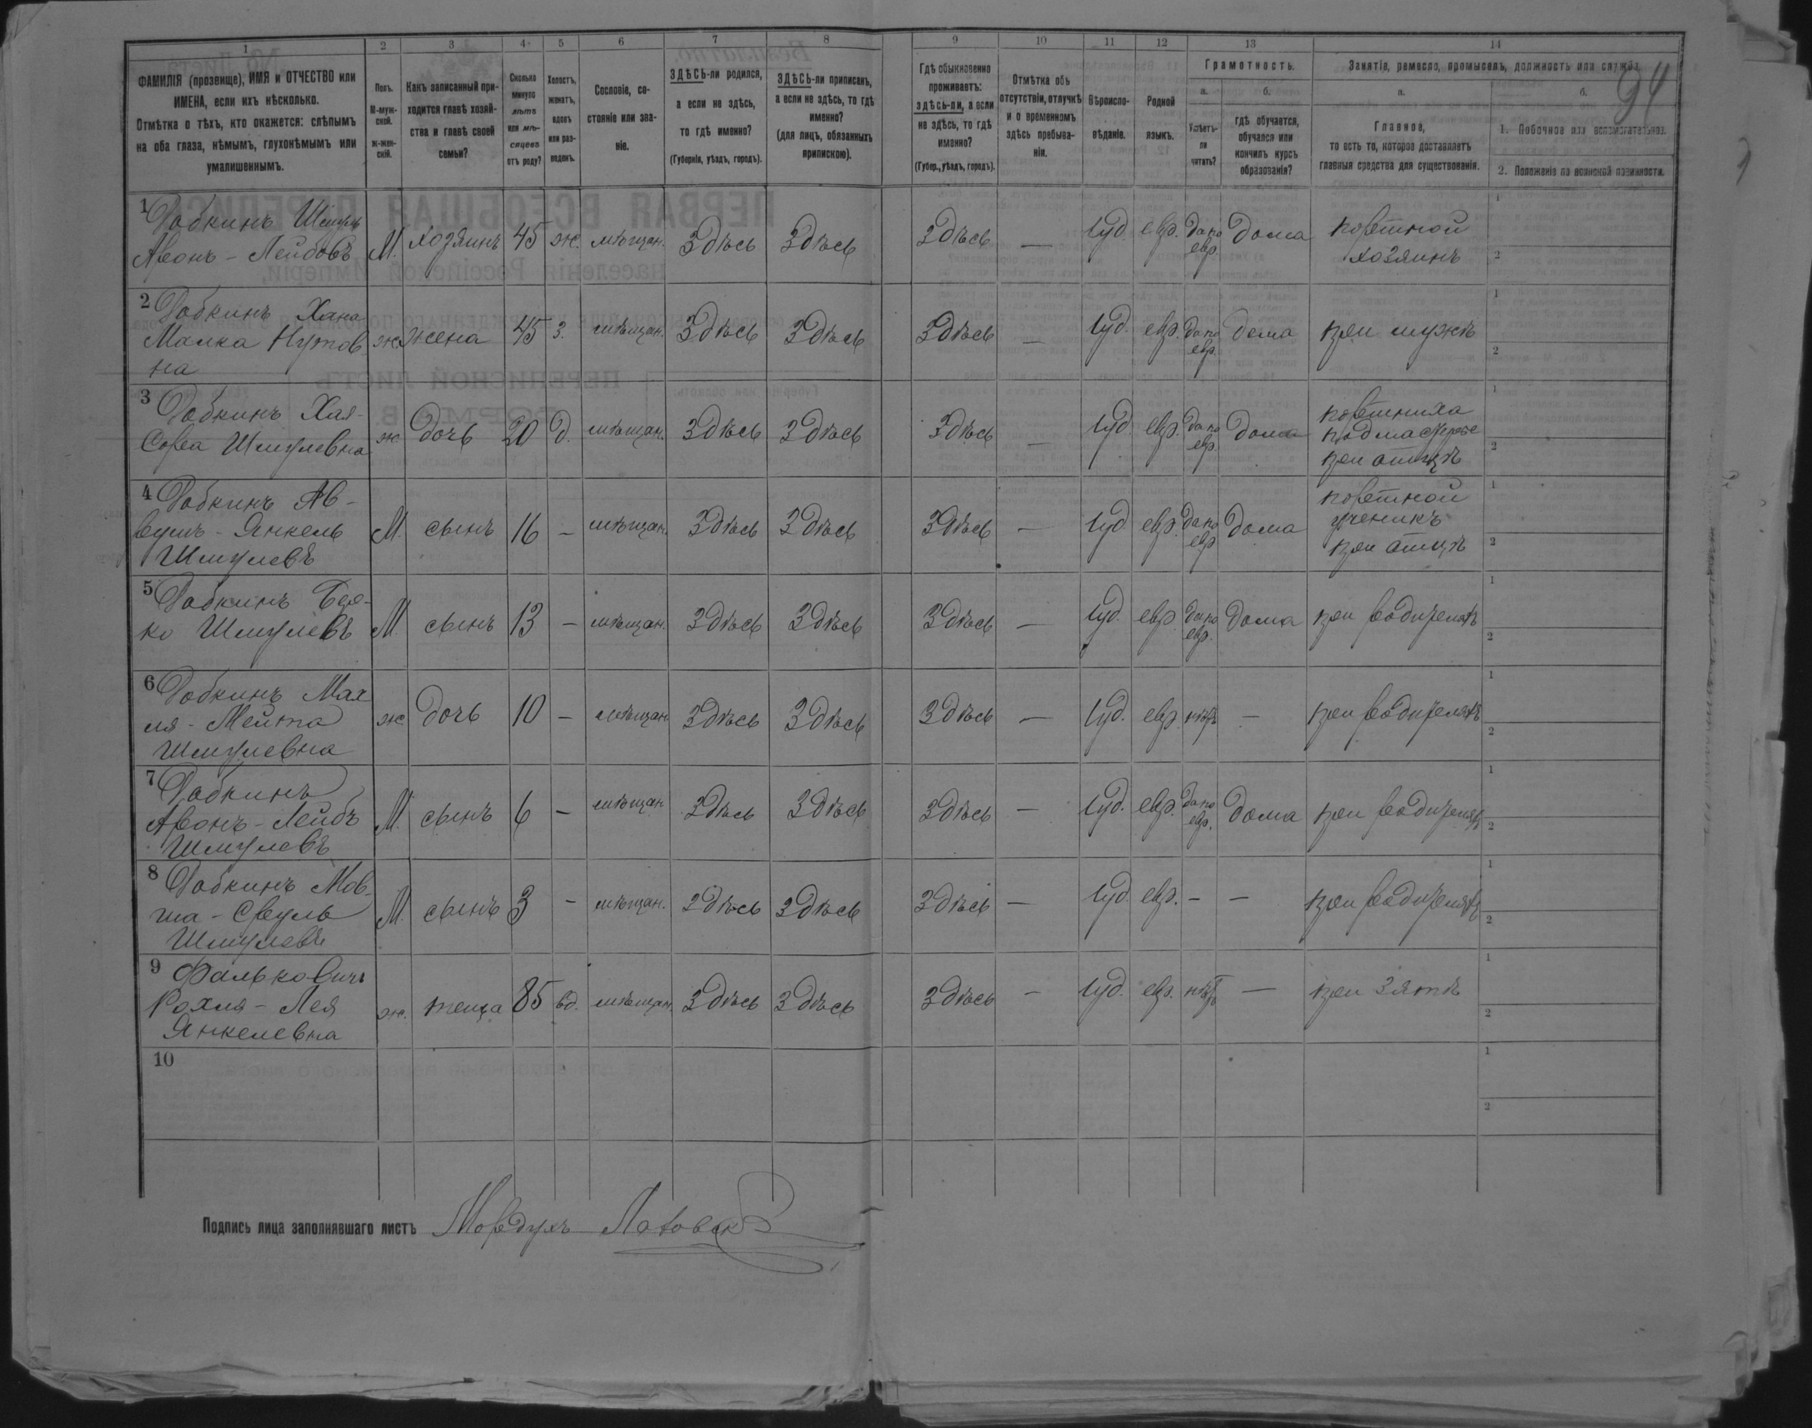 1 2 3 4 5 6 7 8 9 10 11 12 13 14
ФАМИЛІЯ (прозвище), ИМЯ и ОТЧЕСТВО или
ИМЕНА, если ихъ нѣсколько.
Отмѣтка о тѣхъ, кто окажется: слѣпымъ
на оба глаза, нѣмымъ, глухонѣмымъ или
умалишеннымъ.
Полъ.
М-муж-
ской.
ж-жен-
скій.
Какъ записанный при-
ходится главѣ хозяй-
ства и главѣ своей
семьи?
Сколько
минуло
лѣтъ
или мѣ-
сяцевъ
отъ роду?
Холостъ,
женатъ,
вдовъ
или раз-
веденъ.
Сословіе, со-
стояніе или зва-
ніе.
ЗДѢСЬ-ли родился,
а если не здѣсь,
то гдѣ именно?
(Губернія, уѣздъ, городъ).
ЗДѢСЬ-ли приписанъ,
а если не здѣсь, то гдѣ
именно?
(для лицъ, обязанныхъ
припискою).
Гдѣ обыкновенно
проживаетъ:
здѣсь-ли, а если
не здѣсь, то гдѣ
именно?
(Губер., уѣздъ, городъ).
Отмѣтка объ
отсутствіи, отлучкѣ
и о временномъ
здѣсь пребыва-
ніи.
Вѣроиспо-
вѣданіе.
Родной
языкъ.
Грамотность.
а.
Умѣетъ-
ли
читать?
б.
гдѣ обучается,
обучался или
кончилъ курсъ
образованія?
Занятіе, ремесло, промыселъ, должность или служба.
94
а.
Главное,
то есть то, которое доставляетъ
главныя средства для существованія.
б.
1. Побочное или вспомогательное.
2. Положеніе по воинской повинности.
1 Добкинъ Шмуль
Авонъ-Лейбовъ М. хозяинъ 45 ж. мѣщан. Здѣсь Здѣсь Здѣсь — Іуд. евр. да по евр. дома портной
хозяинъ
2 Добкинъ Хана
Малка Нутов
на ж жена 45 з. мѣщан. Здѣсь Здѣсь Здѣсь — Іуд. евр. да по евр. дома при мужѣ
3 Добкинъ Хая-
Сора Шмулевна ж дочь 20 д. мѣщан. Здѣсь Здѣсь Здѣсь — Іуд евр. да по евр. дома портниха
при отцѣ
4 Добкинъ
Янкель
Шмулевъ М. сынъ 16 — мѣщан. Здѣсь Здѣсь Здѣсь — Іуд евр. да по евр дома портной
ученикъ
при отцѣ
5 Добкинъ Бер-
ко Шмулевъ М. сынъ 13 — мѣщан. Здѣсь Здѣсь Здѣсь — Іуд. евр. да по евр. дома при родителяхъ
6 Добкинъ Мах
ля-Мейта
Шмулевна ж дочь 10 — мѣщан Здѣсь Здѣсь Здѣсь — Іуд. евр. нѣтъ — при родителяхъ
7 Добкинъ
Авонъ-Лейбъ
Шмулевъ М. сынъ 6 — мѣщан Здѣсь Здѣсь Здѣсь — Іуд. евр. да по евр. дома при родителяхъ
8 Добкинъ Мов-
ша-Сруль
Шмулевъ М. сынъ 3 — мѣщан. Здѣсь Здѣсь Здѣсь — Іуд. евр. — — при родителяхъ
9 Фальковичъ
Рохля-Лея
Янкелевна ж. теща 85 вд. мѣщан. Здѣсь Здѣсь Здѣсь — Іуд. евр. нѣтъ — при зятѣ
10
Подпись лица заполнявшаго листъ Мордухъ